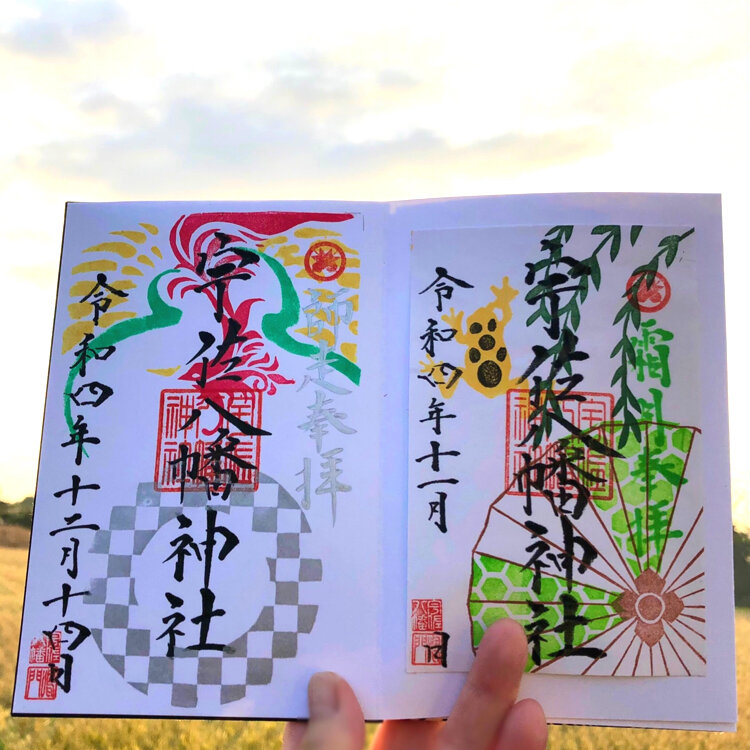 霜月奉拝
宇佐八幡神社
令和四年十一月 日
師走奉拝
宇佐八幡神社
令和四年十二月十四日